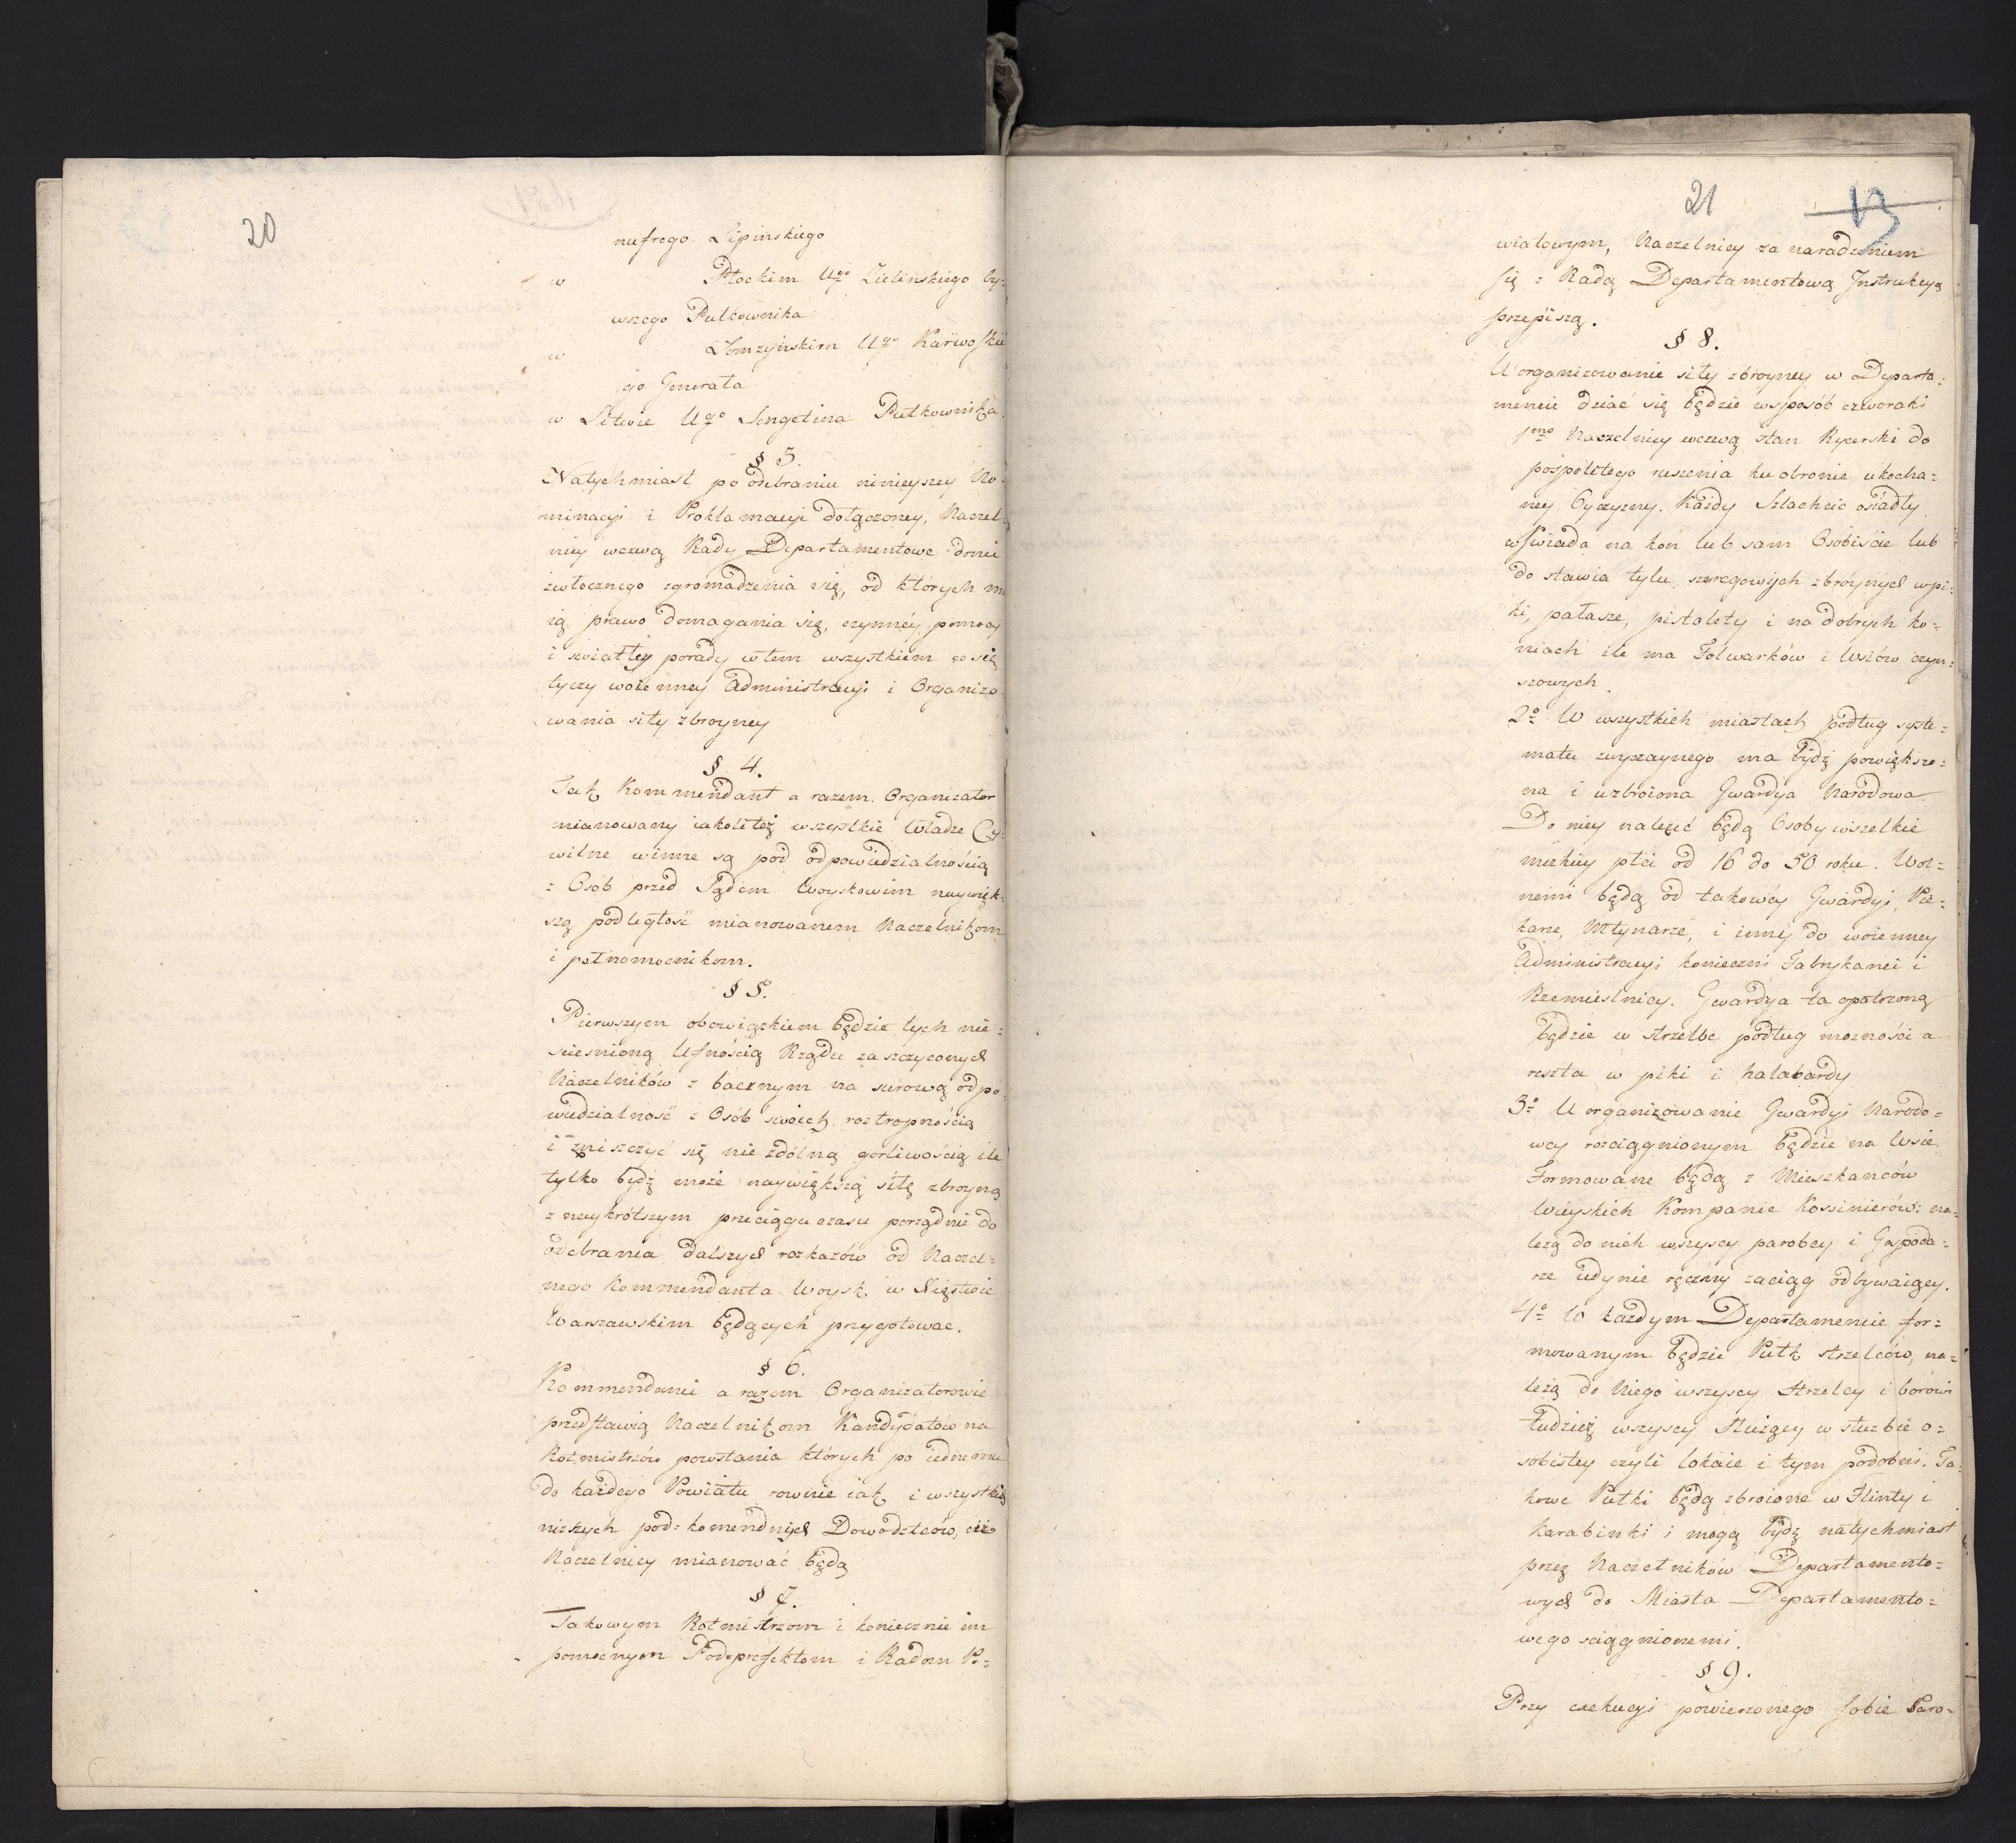 20
nufrego Lipinskiego
w Płockim Ugo Zielinskiego by=
wszego Pułkownika
w Łomzyńskim Ugo Karwoski
go Generała
w Litwie Ugo Pułkownika
§ 3.
Natychmiast po odebraniu ninieyszey No=
minacyi i Proklamacyi dołączoney, Naczel=
nicy wezwą Rady Departamentowe donie
zwłocznego zgromadzenia się, od których ma
ią prawo domagania się, czynnéy pomocy
i swiatłey porady wtem wszystkiém co się
tyczy woienney Administracyi i Organizo
wania siły zbroyney
§ 4.
Tak Kommendant a razem Organizator
mianowany iakoliteż wszystkie Władze Cy=
wilne winne są pod odpowiedzialnością
z Osób przed Sądem Woyskowim naywięk=
szą podległość mianowanem Naczelnikom
i pełnomocnikom.
§ 5.
Pierwszym obowiązkiem będzie tych nie=
sciesnioną Ufnością Rządu zaszczyconych
Naczelników z bacznym na surową odpo=
wiedzialność z Osób swoich roztropnością
i zniszczyć się nie zdólną gorliwością ile
tylko bydź może naywiększą siłę zbroyną
z naykrótszym przeciągu czasu porządnie do
odebrania dalszych rozkazów od Naczel=
nego Kommendanta Woysk w Xięstwie
Warszawskim będących przygotowac.
§ 6.
Kommendanci a razem Organizatorowie
przedstawią Naczelnikom Kandydatow na
Rotmistrzów powstania których po iednemu
do każdego Powiatu rownie iak i wszystkich
niższych pod=komendnych Dowodzców, ciż
Naczelnicy mianować będą
§ 7.
Takowym Rotmistrzom i koniecznie im
pomocnym Podprefektom i Radom Po=
21
13
wiatowym, Naczelnicy za naradzeniem
się z Radą Departamentową Instrukcyą
przepiszą.
§ 8.
Uorganizowanie siły zbroyney w Departa=
mencie dziać się będzie wsposób czworaki
1mo Naczelnicy wezwą stan Rycerski do
pospolitego ruszenia ku obronie ukocha=
ney Oyczyzny. Każdy Szlachcic osiadły
wsiada na kon lub sam Osobiscie lub
do stawia tylu szeregowych zbróynych wpi=
ki, pałasze, pistolety i na dobrych ko=
niach ile ma Folwarków i Wsiów czyn=
szowych.
2o W wszystkich miastach podług syste=
matu zwyczaynego ma bydź powiększo=
na i uzbroiona Gwardya Narodowa.
Do niey należić będą Osoby wszelkie
mezkiey płci od 16 do 50 roku. Wol=
nemi będą od takowéy Gwardyi, Pie=
karze, Młynarze, i inni do woienney
Administracyi konieczni Fabrykanci i
Rzemieslnicy. Gwardya ta opatrzoną
będzie w strzelbe podług mozności a
reszta w piki i halabardy
3o Uorganizowanie Gwardyi Narodo=
wey rozciągnionym będzie na Wsie.
Formowane będą z Mieszkanców
Wieyskich Kompanie Kossinierów: na=
leżą do nich wszyscy parobcy i Gospoda=
rze iedynie ręczny zaciąg odbywaiący.
4o W każdym Departamencie for=
mowanym będzie Pułk strzelców, na=
leżą do Niego wszyscy Strzelcy i borowi
tudzież wszyscy Służący w służbie o=
sobistey czyli lokaie i tym podobni. Ta=
kowe Pułki będą zbroione w Flinty i
Karabinki i mogą bydź natychmiast
przez Naczelników Departamento=
wych do Miasta Departamento=
wego sciągnionemi.
§ 9.
Przy exekucyi powierzonego sobie